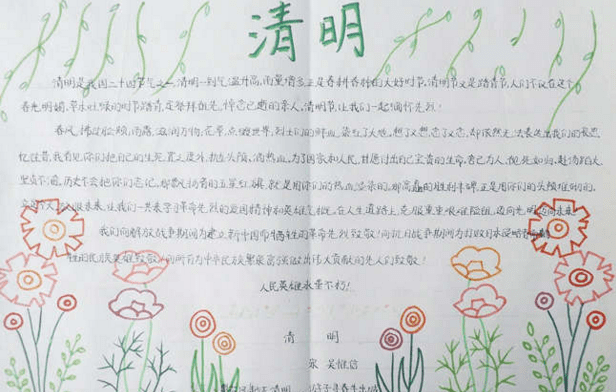 清明
清明是我国二十四节气之一,清明一到气温升高,雨量增多正是春耕春种的大好时节,清明节又是踏青节,人们不仅在这个
春光明媚,草木吐绿的时节踏青,在祭拜祖先,悼念已逝的亲人,清明节,让我们一起缅怀先烈!
春风,拂过脸颊,雨露,滋润万物,花草,点缀世界,烈士们的鲜血,染红了大地,想了又想,念了又念,却依然无法表达出我们的哀思,
忆往昔,我看见你们把自己的生死,置之度外,抛头颅,洒热血,为了国家和人民,甘愿付出自己宝贵的生命,舍己为人,视死如归,赴汤蹈火,
历史不会把你们忘记,那飘扬着的五星红旗,就是用你们的热血染来的,那高矗的胜利丰碑,正是用你们的头颅堆砌的,
让我们一去奉字习革命先烈的爱国精神和英雄气概,在人生道路上,克服重重艰难险阻,迈向光明的未来
我们向解放战争期间为建立新中国而牺牲的革命先烈致敬!向抗日战争期间为打败日本侵略者
牲的民族英雄致敬!向所有为中华民族繁荣富强做出伟大贡献的先人们致敬!
人民英雄永垂不朽!
清 明
宋 吴惟信